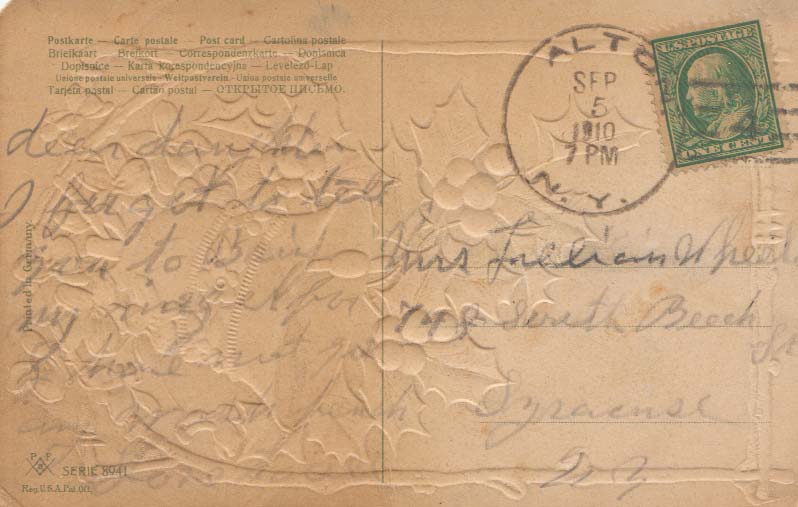 Postkarte — Carte postale — Post card — Cartolina postale
Briefkaart — Brefkort — Correspondenzkarte — Dopisnica
Dopisnice — Karta korespondencyjna — Levelező-Lap
Unione postale universale - Weltpostverein. - Union postale universelle
Tarjeta postal — Cartão postal — ОТКРЫТОЕ ПИСЬМО.
ALTON
SEP
5
1910
7 PM
N.Y.
U.S. POSTAGE
ONE CENT
dear daughter
I forgot to tell
you to
my
I have not got
Love
Printed in Germany.
Mrs Lillian
South Beech
St
Syracuse
N Y
P F
SERIE 8941
Reg. U.S.A. Pat. Off.